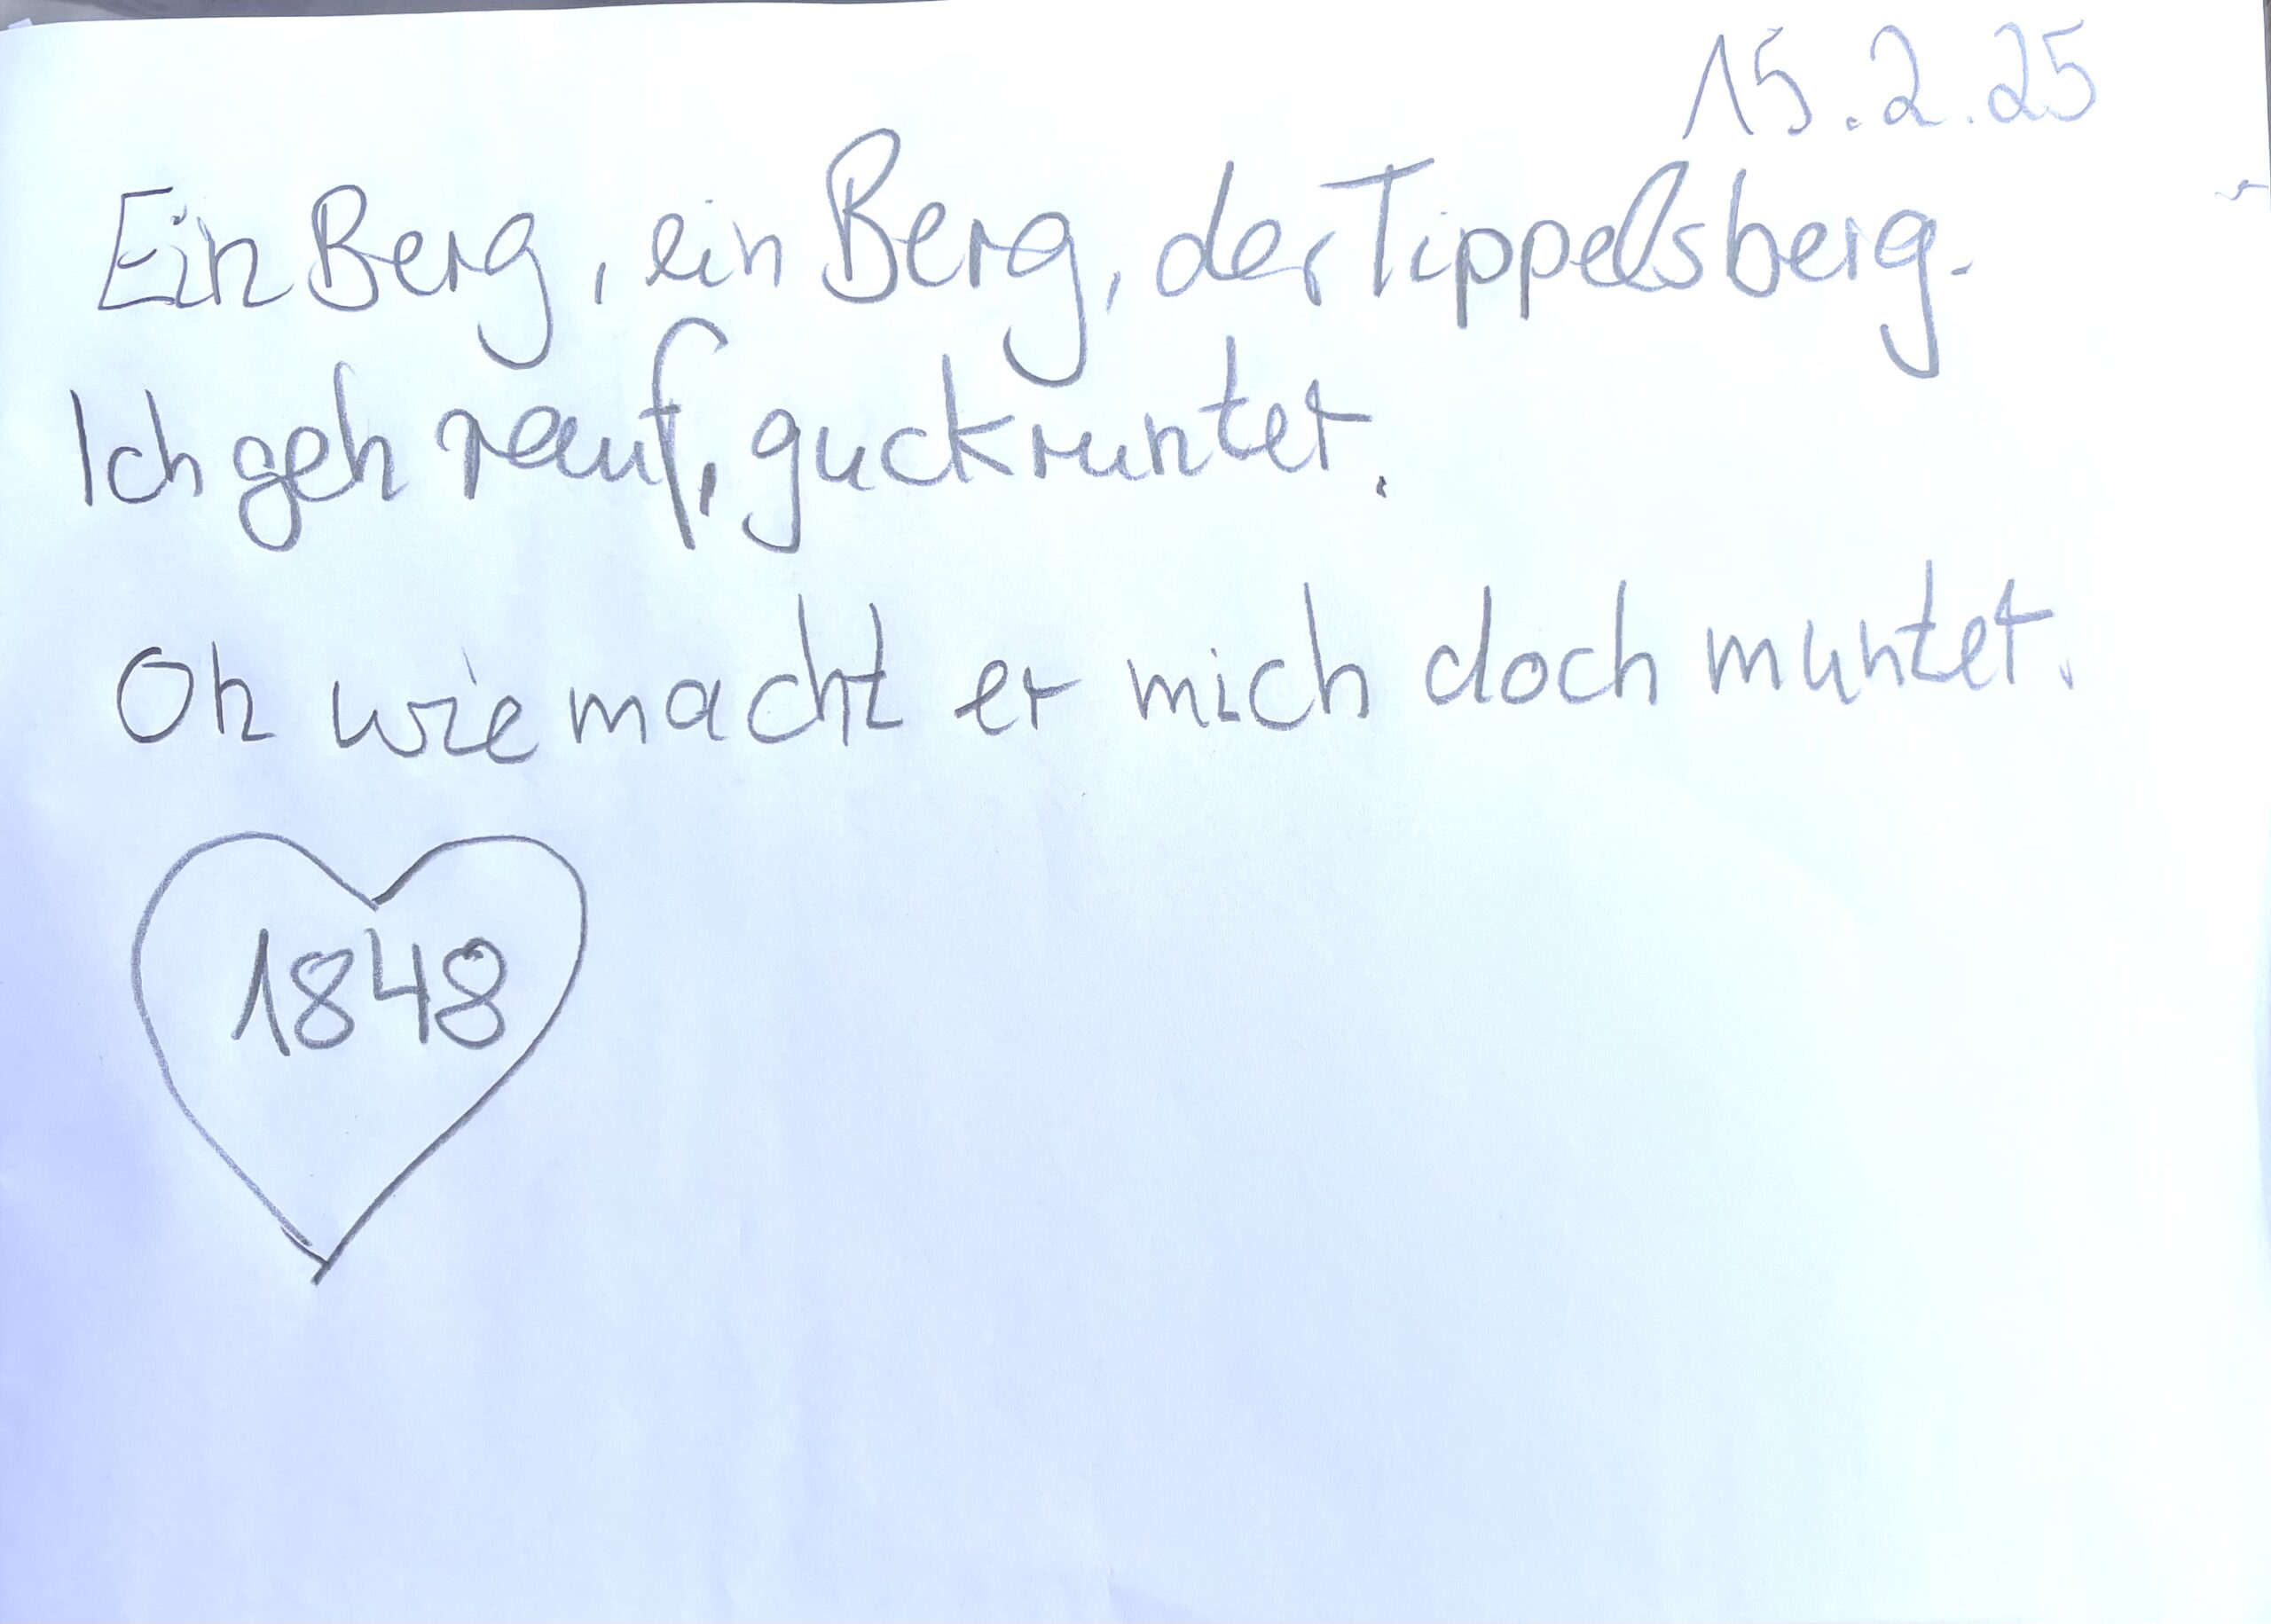 15.2.25
Ein Berg, ein Berg, der Tippelsberg.
Ich geh rauf, guck runter.
Oh wie macht er mich doch munter.
1848